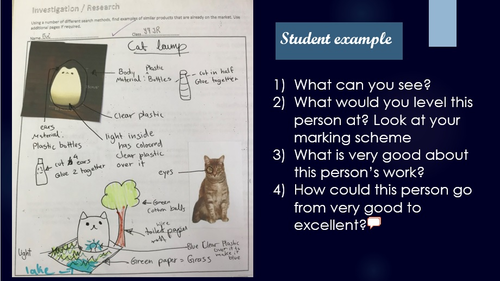 Investigation / Research
Using a number of different search methods, find examples of similar products that are already on the market. Use
additional pages if required.
Name
Class
Cat Lamp
Body Plastic
Material: Bottles
cut in half
Glue together
clear plastic
ears
Material:
Plastic bottles
light inside
has coloured
clear plastic
over it
cut 4 ears
Glue 2 together
eyes
Green
cotton balls
wire
toilet paper
Light
lake
Blue Clear Plastic
make it
blue
Green paper = Grass
Student example
1) What can you see?
2) What would you level this
person at? Look at your
marking scheme
3) What is very good about
this person's work?
4) How could this person go
from very good to
excellent?